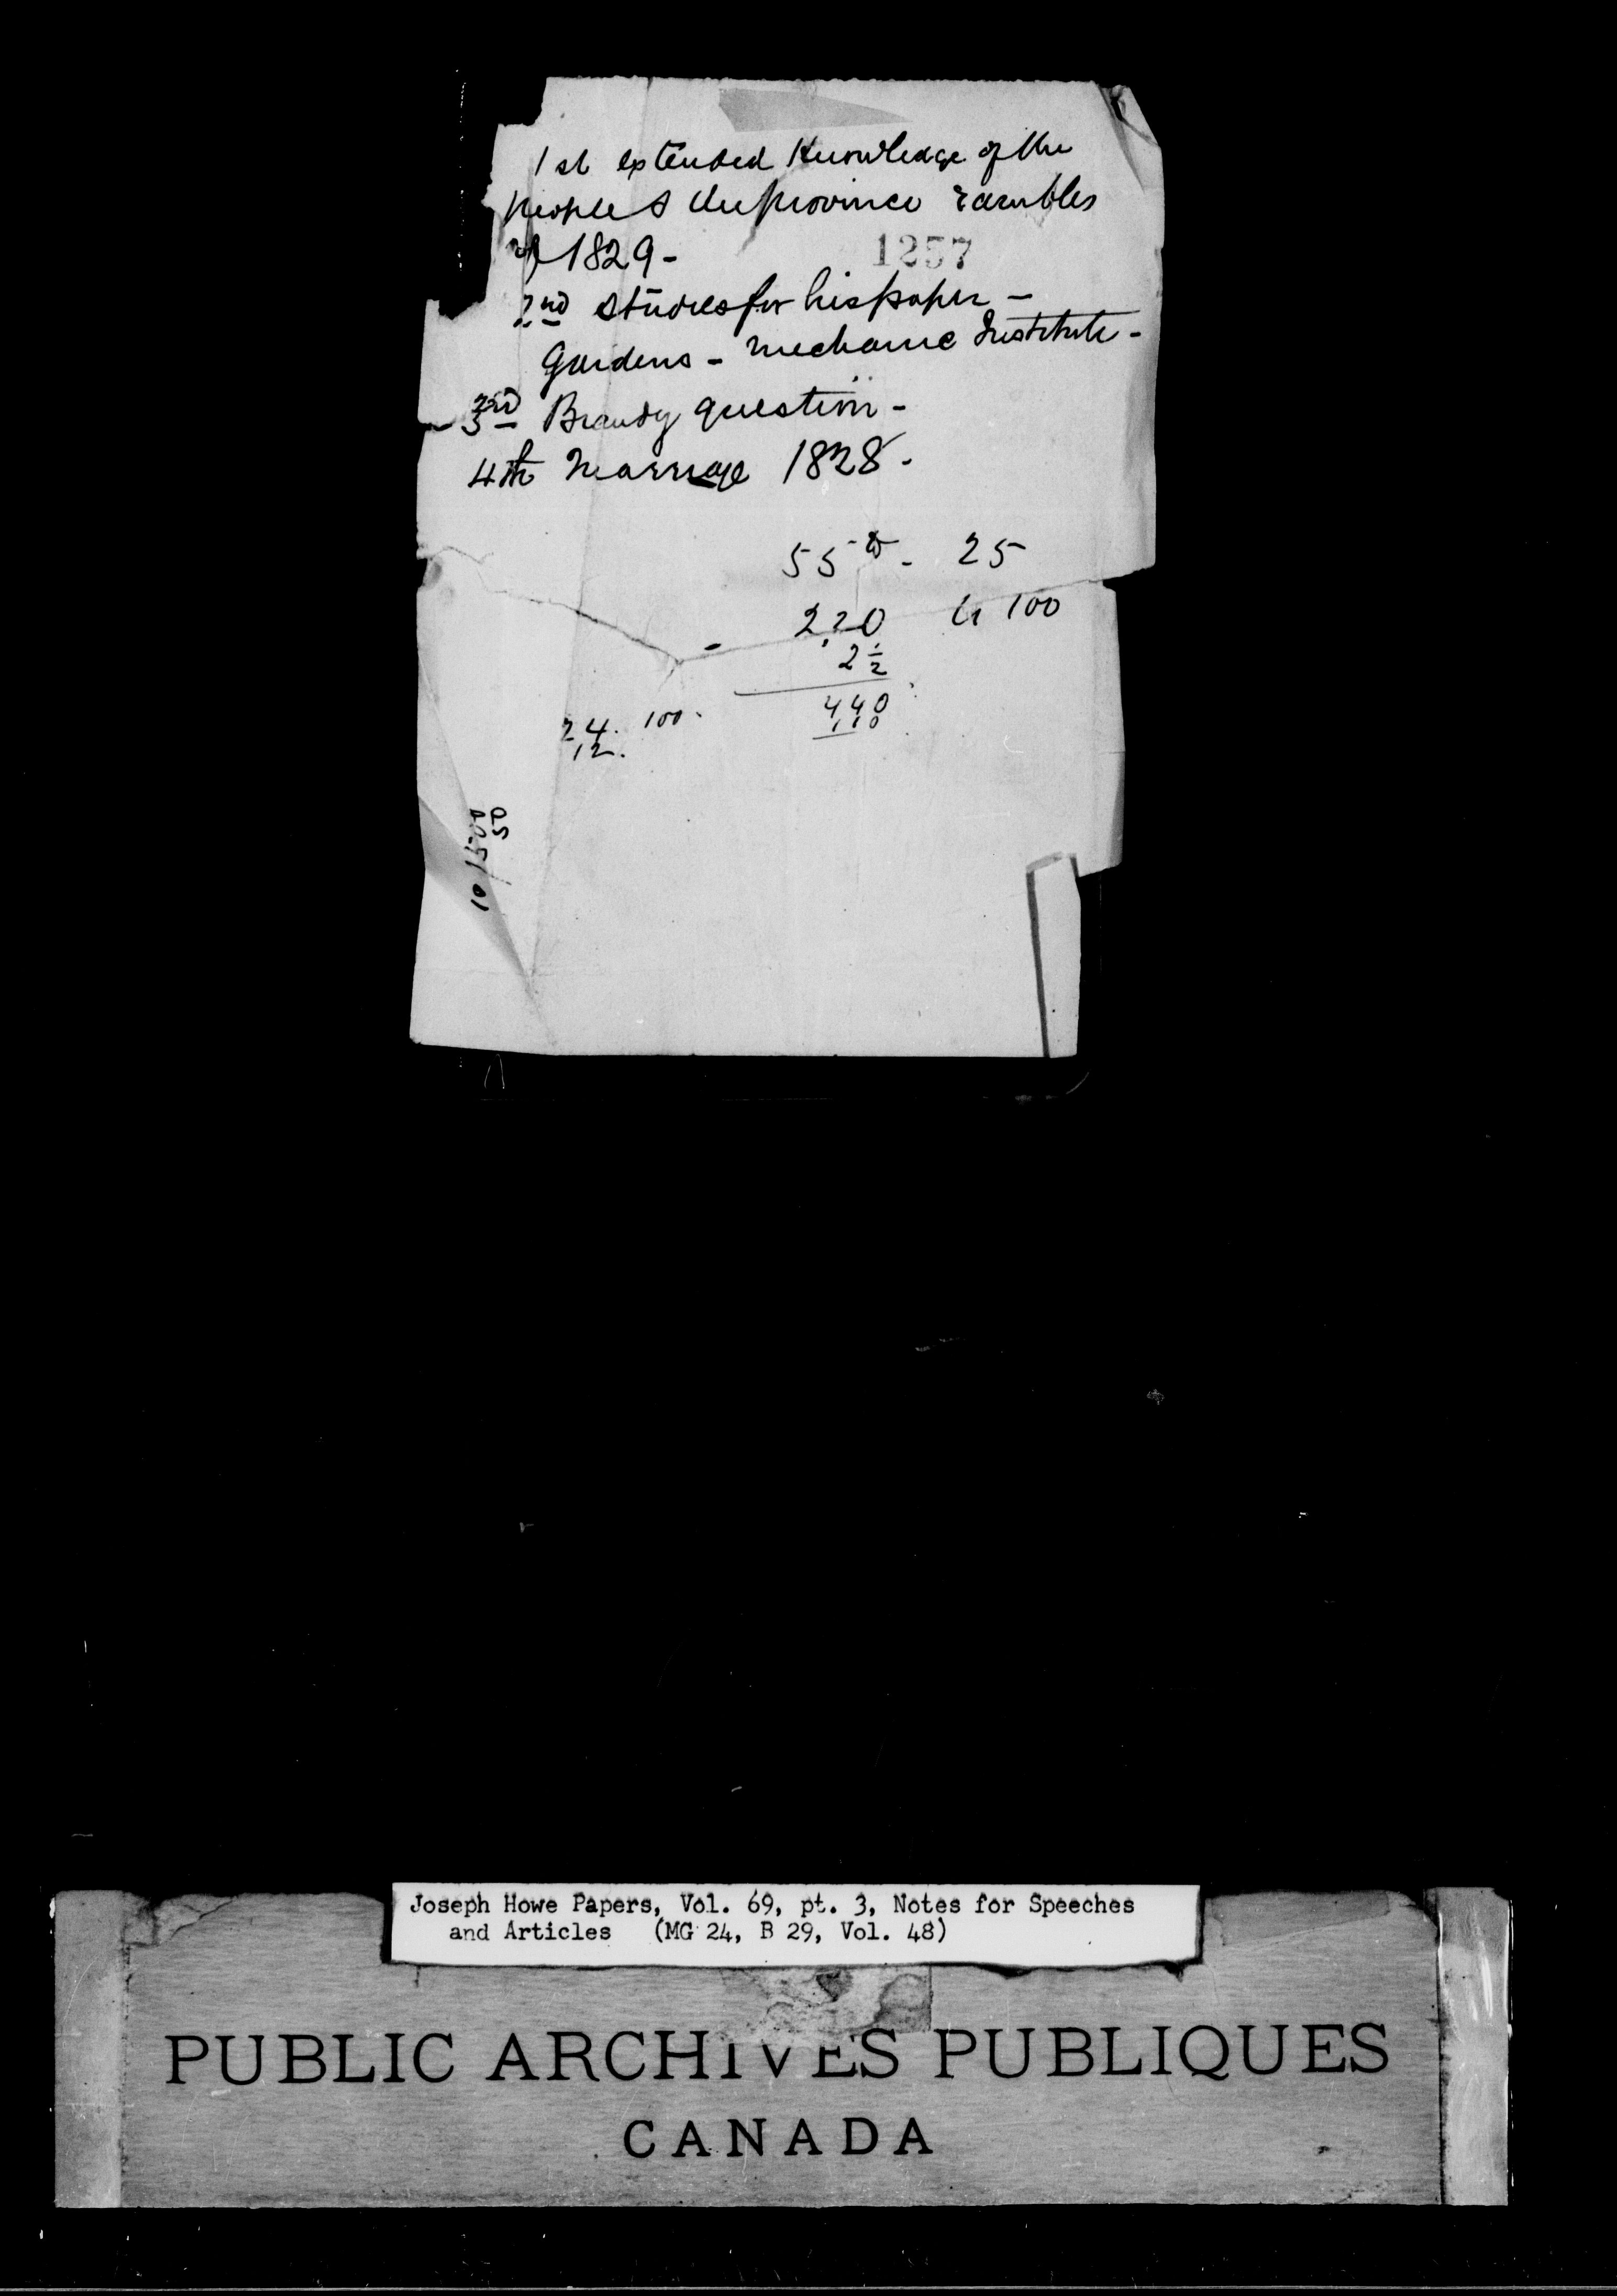 1st extended Knowledge of the
people & the province rambles
of 1829 -
1257
2nd studies for his paper -
Gardens - Mechanic Institute -
3rd Brandy question -
4th Marriage 1828.
55 - 25
220 100
2 1/2
440
110
24. 100.
12.
10/500
50
Joseph Howe Papers, Vol. 69, pt. 3, Notes for Speeches
and Articles (MG 24, B 29, Vol. 48)
PUBLIC ARCHIVES PUBLIQUES
CANADA